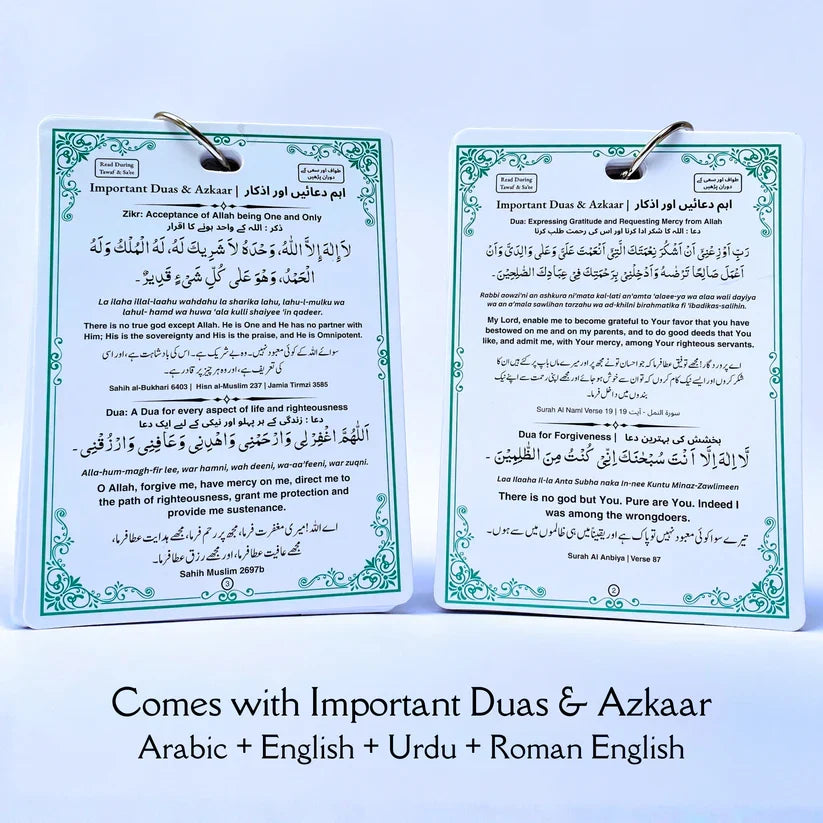 Read During
Tawaf & Sa'ee
طواف اور سعی کے
دوران پڑھیں
Important Duas & Azkaar | اہم دعائیں اور اذکار
Zikr: Acceptance of Allah being One and Only
ذکر : اللہ کے واحد ہونے کا اقرار
لَاۤ اِلٰهَ اِلَّا اللّٰهُ، وَحْدَهٗ لَا شَرِيكَ لَهٗ، لَهُ الْمُلْكُ وَلَهُ
الْحَمْدُ، وَهُوَ عَلٰى كُلِّ شَیْءٍ قَدِيرٌ۔
La ilaha illal-laahu wahdahu la sharika lahu, lahu-l-mulku wa
lahul- hamd wa huwa 'ala kulli shaiyee 'in qadeer.
There is no true god except Allah. He is One and He has no partner with
Him; His is the sovereignty and His is the praise, and He is Omnipotent.
سوائے اللہ کے کوئی معبود نہیں۔ وہ بے شریک ہے۔ اس کی بادشاہت ہے، اور اسی
کی تعریف ہے، اور وہ ہر چیز پر قادر ہے۔
Sahih al-Bukhari 6403 | Hisn al-Muslim 237 | Jamia Tirmzi 3585
Dua: A Dua for every aspect of life and righteousness
دعا : زندگی کے ہر پہلو اور نیکی کے لیے ایک دعا
اَللّٰهُمَّ اغْفِرْ لِی وَارْحَمْنِی وَاهْدِنِی وَعَافِنِی وَارْزُقْنِی۔
Alla-hum-magh-fir lee, war hamni, wah deeni, wa-aa'feeni, war zuqni.
O Allah, forgive me, have mercy on me, direct me to
the path of righteousness, grant me protection and
provide me sustenance.
اے اللہ! میری مغفرت فرما، مجھ پر رحم فرما، مجھے ہدایت عطا فرما،
مجھے عافیت عطا فرما، اور مجھے رزق عطا فرما۔
Sahih Muslim 2697b
3
Read During
Tawaf & Sa'ee
طواف اور سعی کے
دوران پڑھیں
Important Duas & Azkaar | اہم دعائیں اور اذکار
Dua: Expressing Gratitude and Requesting Mercy from Allah
دعا : اللہ کا شکر ادا کرنا اور اس کی رحمت طلب کرنا
رَبِّ اَوْزِعْنِیْۤ اَنْ اَشْكُرَ نِعْمَتَكَ الَّتِیْۤ اَنْعَمْتَ عَلَیَّ وَعَلٰی وَالِدَیَّ وَاَنْ
اَعْمَلَ صَالِحًا تَرْضٰىهُ وَاَدْخِلْنِیْ بِرَحْمَتِكَ فِیْ عِبَادِكَ الصّٰلِحِیْنَ۔
Rabbi aowzi'ni an ashkura ni'mata kal-lati an'amta 'alaee-ya wa alaa wali dayiya
wa an a'mala sawlihan tarzahu wa ad-khilni birahmatika fi 'ibadikas-salihin.
My Lord, enable me to become grateful to Your favor that you have
bestowed on me and on my parents, and to do good deeds that You
like, and admit me, with Your mercy, among Your righteous servants.
اے پروردگار! مجھے توفیق عطا فرما کہ جو احسان تو نے مجھ پر اور میرے ماں باپ پر کئے ہیں ان کا
شکر کروں اور ایسے نیک کام کروں کہ تو ان سے خوش ہو جائے اور مجھے اپنی رحمت سے اپنے نیک
بندوں میں داخل فرما۔
Surah Al Naml Verse 19 | سورۃ النمل - آیت 19
Dua for Forgiveness | بخشش کی بہترین دعا
لَّاۤ اِلٰهَ اِلَّاۤ اَنْتَ سُبْحٰنَكَ اِنِّیْ كُنْتُ مِنَ الظّٰلِمِیْنَ۔
Laa Ilaaha Il-la Anta Subha naka In-nee Kuntu Minaz-Zawlimeen
There is no god but You. Pure are You. Indeed I
was among the wrongdoers.
تیرے سوا کوئی معبود نہیں تو پاک ہے اور یقیناً میں ہی ظالموں میں سے ہوں۔
Surah Al Anbiya | Verse 87
2
Comes with Important Duas & Azkaar
Arabic + English + Urdu + Roman English